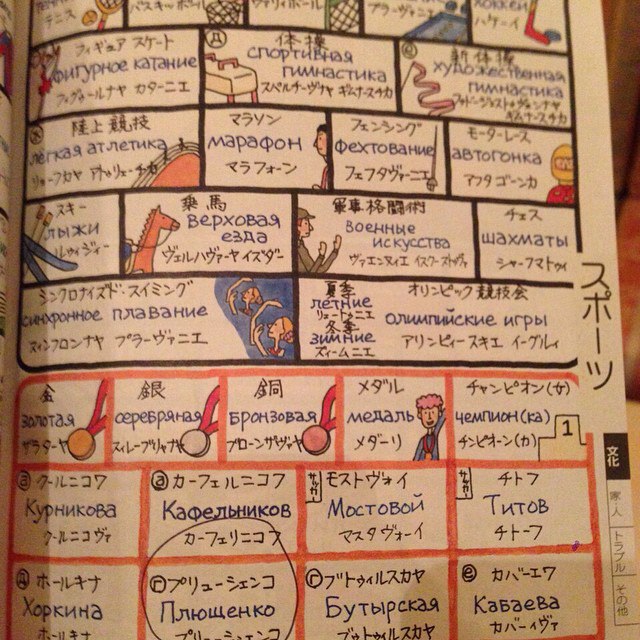 テニス
バスキーボール
ヴァリィボール
プラーヴァニエ
ホッケー
ハケーイ
フィギュア スケート
фигурное катание
フィグールナヤ カターニエ
Д
体操
спортивная
гимнастика
スパルチーヴナヤ ギムナースチカ
新体操
художественная
гимнастика
ギムナースチカ
陸上競技
лёгкая атлетика
マラソン
марафон
マラフォーン
フェンシング
фехтование
フェフタヴァーニエ
モーターレース
автогонка
アフタゴーンカ
スキー
лыжи
乗馬
верховая
езда
ヴェルハヴァーヤ イズダー
軍事格闘術
военные
искусства
ヴァエンヌィエ イスクーストヴァ
チェス
шахматы
シャーフマトゥィ
シンクロナイズド・スイミング
синхронное плавание
スィンフロンナヤ プラーヴァニエ
夏季
летние
リェートニエ
冬季
зимние
ズィームニエ
オリンピック競技会
олимпийские игры
アリンピィースキエ イーグルィ
スポーツ
金
золотая
ザラターヤ
銀
серебряная
スィレーブリャナヤ
銅
бронзовая
ブローンザヴァヤ
メダル
медаль
メダーリ
チャンピオン(女)
чемпион(ка)
チンピオーン(カ)
1
文化
家・人
トラブル
その他
ⓐ クールニコワ
Курникова
クールニコヴァ
ⓐ カーフェルニコフ
Кафельников
カーフェリニコフ
サッカー
モストヴォイ
Мостовой
マスタヴォーイ
サッカー
チトフ
Титов
チトーフ
ホールキナ
Хоркина
ホールキナ
プリューシェンコ
Плющенко
プリューシェンコ
ブトゥィルスカヤ
Бутырская
ブゥトゥィルスカヤ
カバーエワ
Кабаева
カバーイヴァ